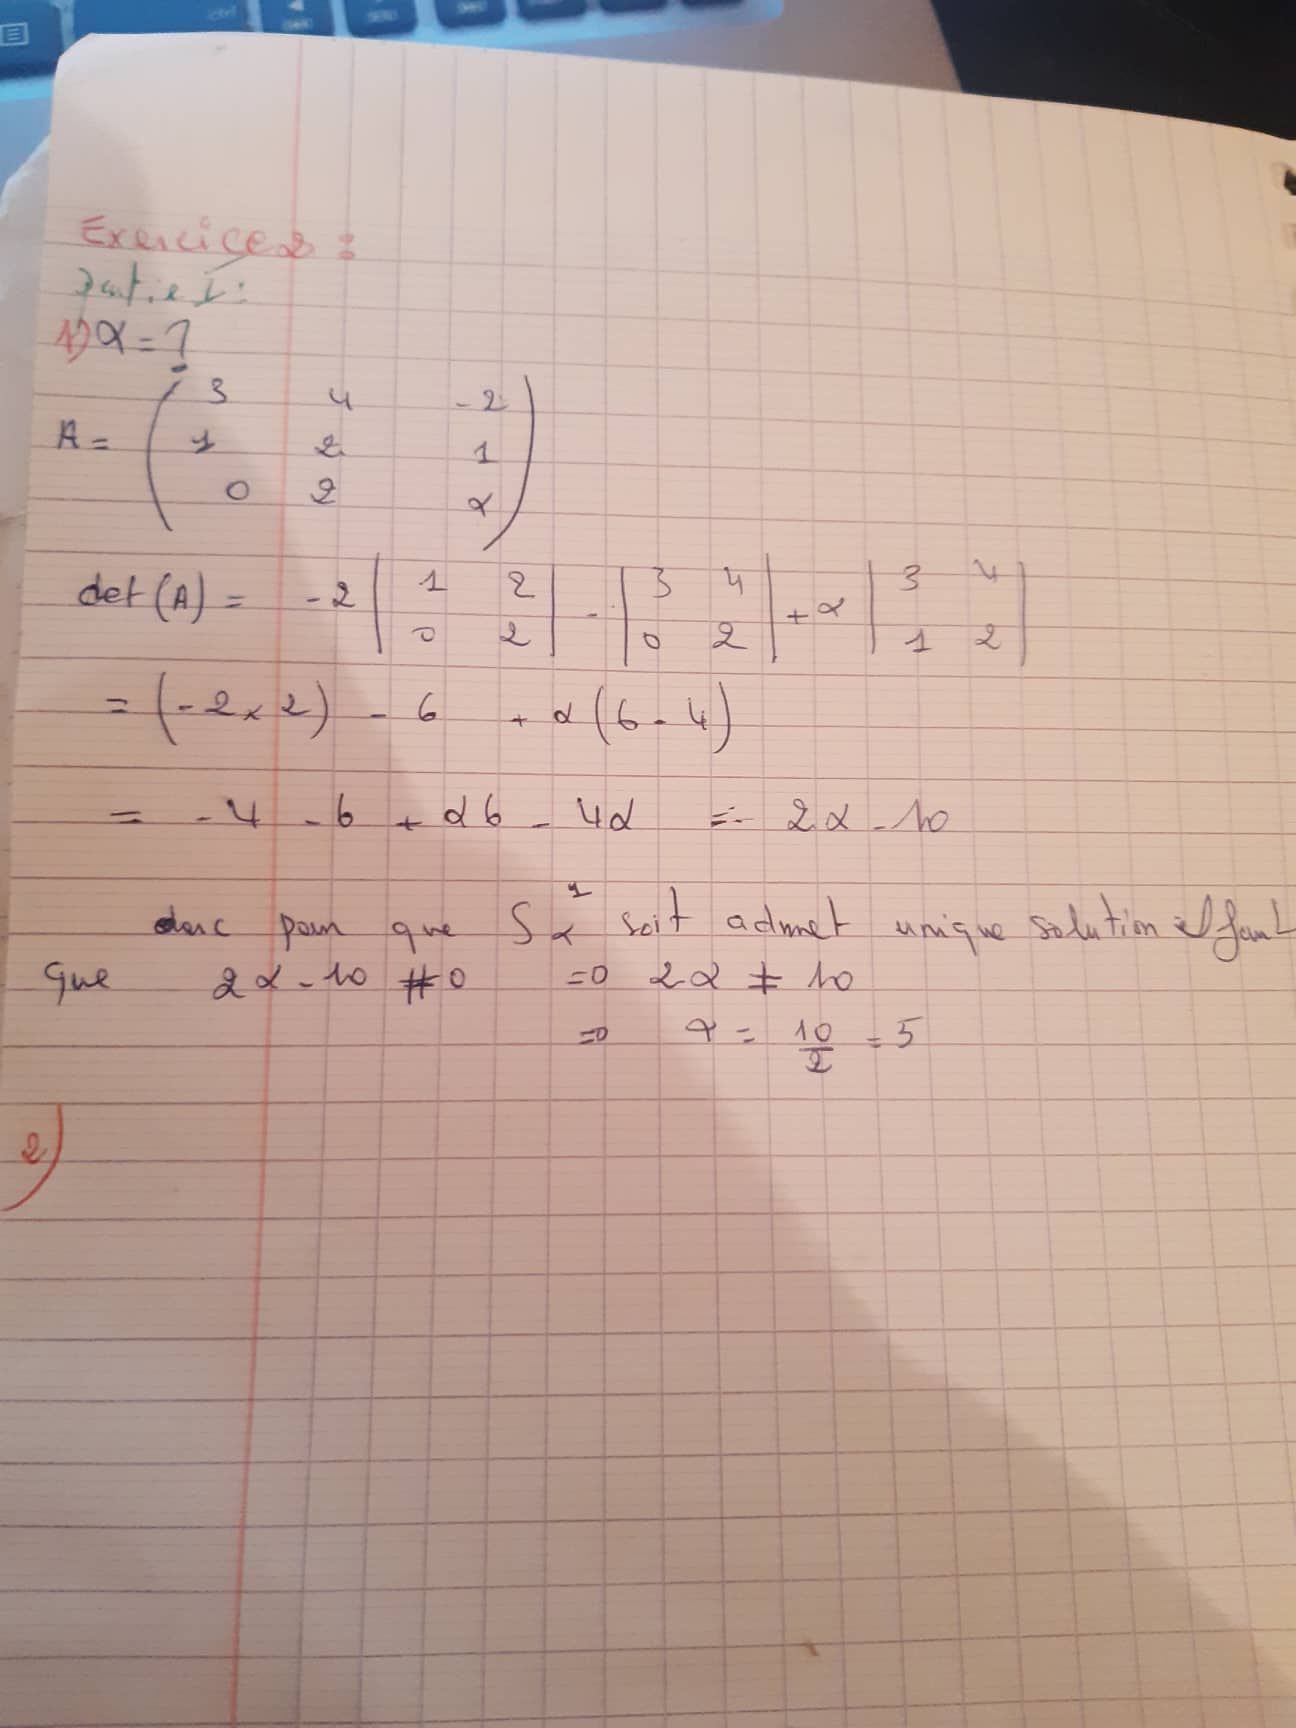 Exercice 2 :
Partie I :
1) α = ?
A = ( 3 4 -2
1 2 1
0 2 α )
det(A) = -2 | 1 2 | - | 3 4 | + α | 3 4 |
| 0 2 | | 0 2 | | 1 2 |
= (-2 × 2) - 6 + α (6 - 4)
= - 4 - 6 + α6 - 4α = 2α - 10
donc pour que S¹α soit admet unique solution il faut
que 2α - 10 ≠ 0 => 2α ≠ 10
=> α = 10/2 = 5
2)